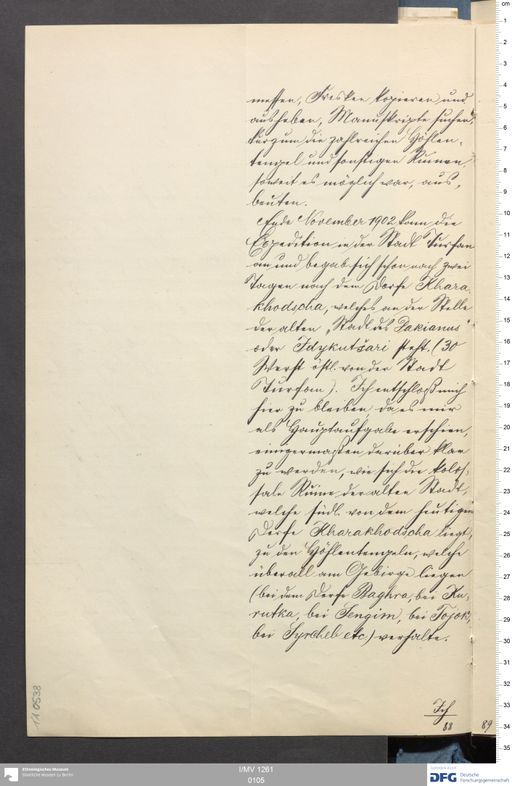 messen, Fresken kopieren und
ausheben, Manuskripte suchen,
kurzum die zahlreichen Höhlen-
tempel und sonstigen Ruinen,
soweit es möglich war, aus-
beuten.
Ende November 1902 kam die
Expedition in der Stadt Turfan
an und begab sich schon nach zwei
Tagen nach dem Dorfe Khara
khodscha, welches an der Stelle
der alten „Stadt des Dakianus"
oder Idykutšari steht. (30
Werst östl. von der Stadt
Turfan). Ich entschloß mich
hier zu bleiben, da es mir
als Hauptaufgabe erschien,
einigermaßen darüber klar
zu werden, wie sich die kolos-
sale Ruine der alten Stadt,
welche südl. von dem heutigen
Dorfe Kharakhodscha liegt,
zu den Höhlentempeln, welche
überall am Gebirge liegen
(bei dem Dorfe Baghra, bei Ku-
rutka, bei Sengim, bei Tojok,
bei Syrcheb etc) verhalte.
Ich
88
89
110538
Ethnologisches Museum
Staatliche Museen zu Berlin
I/MV 1261
0105
DFG Deutsche
Forschungsgemeinschaft